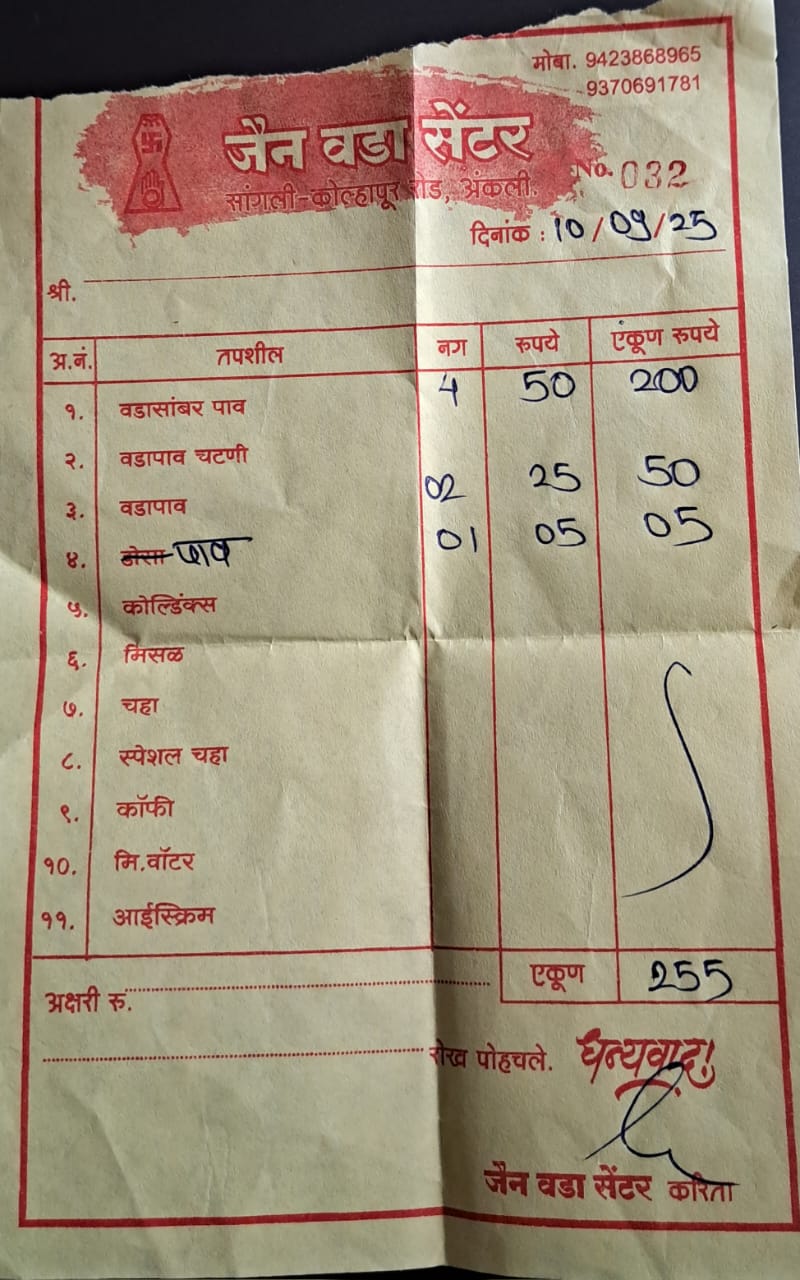 मोबा. 9423868965
9370691781
जैन वडा सेंटर
सांगली-कोल्हापूर रोड, अंकली.
No. 032
दिनांक : 10/09/25
श्री.
अ.नं. तपशील नग रुपये एंकूण रुपये
१. वडासांबर पाव 4 50 200
२. वडापाव चटणी
३. वडापाव 02 25 50
४. डोसा पाव 01 05 05
५. कोल्डिंक्स
६. मिसळ
७. चहा
८. स्पेशल चहा
९. कॉफी
१०. मि.वॉटर
११. आईस्क्रिम
एकूण 255
अक्षरी रु.
रोख पोहचले. धन्यवाद!
जैन वडा सेंटर करिता